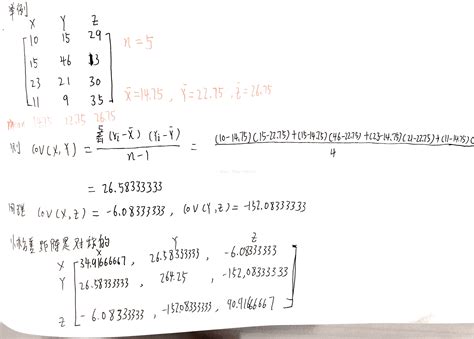 举例
X Y Z
10 15 29
n = 5
15 46 13
23 21 30
X̄=14.75 , Ȳ=22.75 , Z̄=26.75
11 9 35
14.75 22.75 26.75
则 COV(X,Y) = Σ (Xi-X̄) (Yi-Ȳ) / n-1 = (10-14.75)(15-22.75)+(15-14.75)(46-22.75)+(23-14.75)(21-22.75)+(11-14.75)( / 4
= 26.58333333
同理 COV(X,Z) = -6.08333333 , COV(Y,Z) = -152.08333333
协方差矩阵是对称的
X Y Z
X 34.91666667 , 26.58333333 , -6.08333333
Y 26.58333333 , 264.25 , -152.08333333
Z -6.08333333 , -152.08333333 , 90.91666667